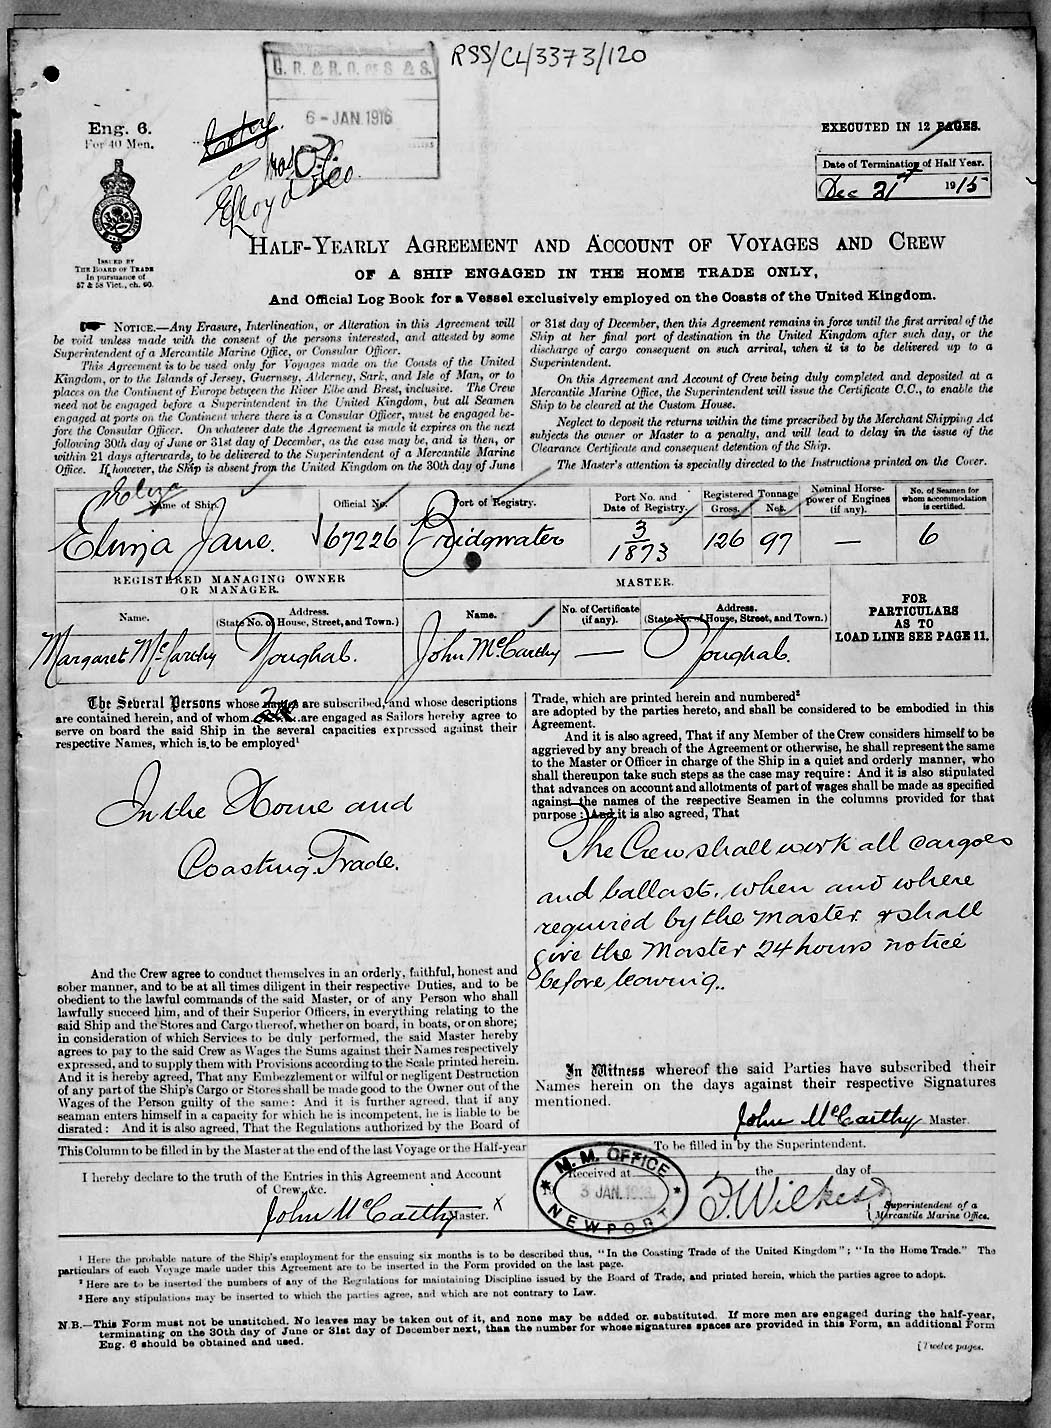 RSS/CL/3373/120
G. R. & R. O. OF S. & S.
6 - JAN 1916
Eng. 6.
For 40 Men.
EXECUTED IN 12 PAGES.
Date of Termination of Half Year.
Dec 31st 1915
ISSUED BY
THE BOARD OF TRADE
In pursuance of
57 & 58 Vict., ch. 60.
HALF-YEARLY AGREEMENT AND ACCOUNT OF VOYAGES AND CREW
OF A SHIP ENGAGED IN THE HOME TRADE ONLY,
And Official Log Book for a Vessel exclusively employed on the Coasts of the United Kingdom.
NOTICE.—Any Erasure, Interlineation, or Alteration in this Agreement will
be void unless made with the consent of the persons interested, and attested by some
Superintendent of a Mercantile Marine Office, or Consular Officer.
This Agreement is to be used only for Voyages made on the Coasts of the United
Kingdom, or to the Islands of Jersey, Guernsey, Alderney, Sark, and Isle of Man, or to
places on the Continent of Europe between the River Elbe and Brest, inclusive. The Crew
need not be engaged before a Superintendent in the United Kingdom, but all Seamen
engaged at ports on the Continent where there is a Consular Officer, must be engaged be-
fore the Consular Officer. On whatever date the Agreement is made it expires on the next
following 30th day of June or 31st day of December, as the case may be, and is then, or
within 21 days afterwards, to be delivered to the Superintendent of a Mercantile Marine
Office. If, however, the Ship is absent from the United Kingdom on the 30th day of June
or 31st day of December, then this Agreement remains in force until the first arrival of the
Ship at her final port of destination in the United Kingdom after such day, or the
discharge of cargo consequent on such arrival, when it is to be delivered up to a
Superintendent.
On this Agreement and Account of Crew being duly completed and deposited at a
Mercantile Marine Office, the Superintendent will issue the Certificate C.C., to enable the
Ship to be cleared at the Custom House.
Neglect to deposit the returns within the time prescribed by the Merchant Shipping Act
subjects the owner or Master to a penalty, and will lead to delay in the issue of the
Clearance Certificate and consequent detention of the Ship.
The Master's attention is specially directed to the Instructions printed on the Cover.
Eliza
Name of Ship. Official No. Port of Registry. Port No. and Date of Registry. Registered Tonnage Gross. Net. Nominal Horse-power of Engines (if any). No. of Seamen for whom accommodation is certified.
Eliza Jane. 67226 Bridgwater 3/1873 126 97 — 6
REGISTERED MANAGING OWNER
OR MANAGER.
MASTER.
FOR
PARTICULARS
AS TO
LOAD LINE SEE PAGE 11.
Name. Address. (State No. of House, Street, and Town.) Name. No. of Certificate (if any). Address. (State No. of House, Street, and Town.)
Margaret McCarthy Youghal. John McCarthy — Youghal.
The Several Persons whose names are subscribed, and whose descriptions
are contained herein, and of whom 2 are engaged as Sailors hereby agree to
serve on board the said Ship in the several capacities expressed against their
respective Names, which is to be employed¹
In the Home and
Coasting Trade.
And the Crew agree to conduct themselves in an orderly, faithful, honest and
sober manner, and to be at all times diligent in their respective Duties, and to be
obedient to the lawful commands of the said Master, or of any Person who shall
lawfully succeed him, and of their Superior Officers, in everything relating to the
said Ship and the Stores and Cargo thereof, whether on board, in boats, or on shore;
in consideration of which Services to be duly performed, the said Master hereby
agrees to pay to the said Crew as Wages the Sums against their Names respectively
expressed, and to supply them with Provisions according to the Scale printed herein.
And it is hereby agreed, That any Embezzlement or wilful or negligent Destruction
of any part of the Ship's Cargo or Stores shall be made good to the Owner out of the
Wages of the Person guilty of the same: And it is further agreed, that if any
seaman enters himself in a capacity for which he is incompetent, he is liable to be
disrated: And it is also agreed, That the Regulations authorized by the Board of
Trade, which are printed herein and numbered²
are adopted by the parties hereto, and shall be considered to be embodied in this
Agreement.
And it is also agreed, That if any Member of the Crew considers himself to be
aggrieved by any breach of the Agreement or otherwise, he shall represent the same
to the Master or Officer in charge of the Ship in a quiet and orderly manner, who
shall thereupon take such steps as the case may require: And it is also stipulated
that advances on account and allotments of part of wages shall be made as specified
against the names of the respective Seamen in the columns provided for that
purpose: And it is also agreed, That
The Crew shall work all cargoes
and ballast, when and where
required by the Master & shall
give the Master 24 hours notice
before leaving.
In Witness whereof the said Parties have subscribed their
Names herein on the days against their respective Signatures
mentioned.
John McCarthy Master.
This Column to be filled in by the Master at the end of the last Voyage or the Half-year
I hereby declare to the truth of the Entries in this Agreement and Account
of Crew, &c.
John McCarthy Master. X
To be filled in by the Superintendent.
M. M. OFFICE
NEWPORT
Received at the day of
3 JAN. 1916
Wilkes
Superintendent of a
Mercantile Marine Office.
¹ Here the probable nature of the Ship's employment for the ensuing six months is to be described thus, "In the Coasting Trade of the United Kingdom"; "In the Home Trade." The
particulars of each Voyage made under this Agreement are to be inserted in the Form provided on the last page.
² Here are to be inserted the numbers of any of the Regulations for maintaining Discipline issued by the Board of Trade, and printed herein, which the parties agree to adopt.
³ Here any stipulations may be inserted to which the parties agree, and which are not contrary to Law.
N.B.—This Form must not be unstitched. No leaves may be taken out of it, and none may be added or substituted. If more men are engaged during the half-year,
terminating on the 30th day of June or 31st day of December next, than the number for whose signatures spaces are provided in this Form, an additional Form
Eng. 6 should be obtained and used.
[Twelve pages.